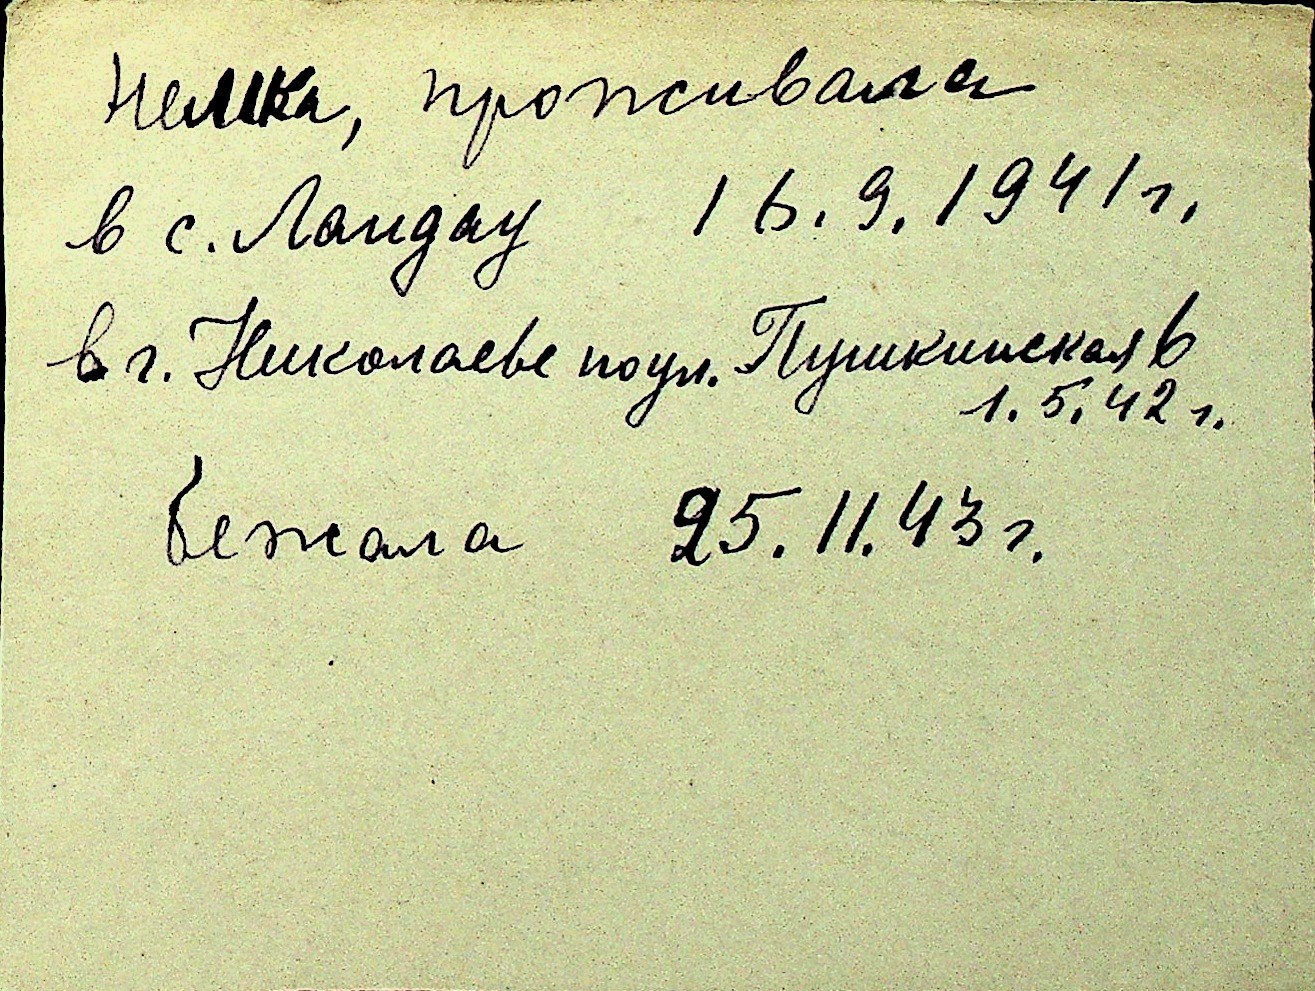 немка, проживала
в с. Ландау 16.9.1941 г.
в г. Николаеве по ул. Пушкинская 6
1.5.42 г.
бежала 25.11.43 г.